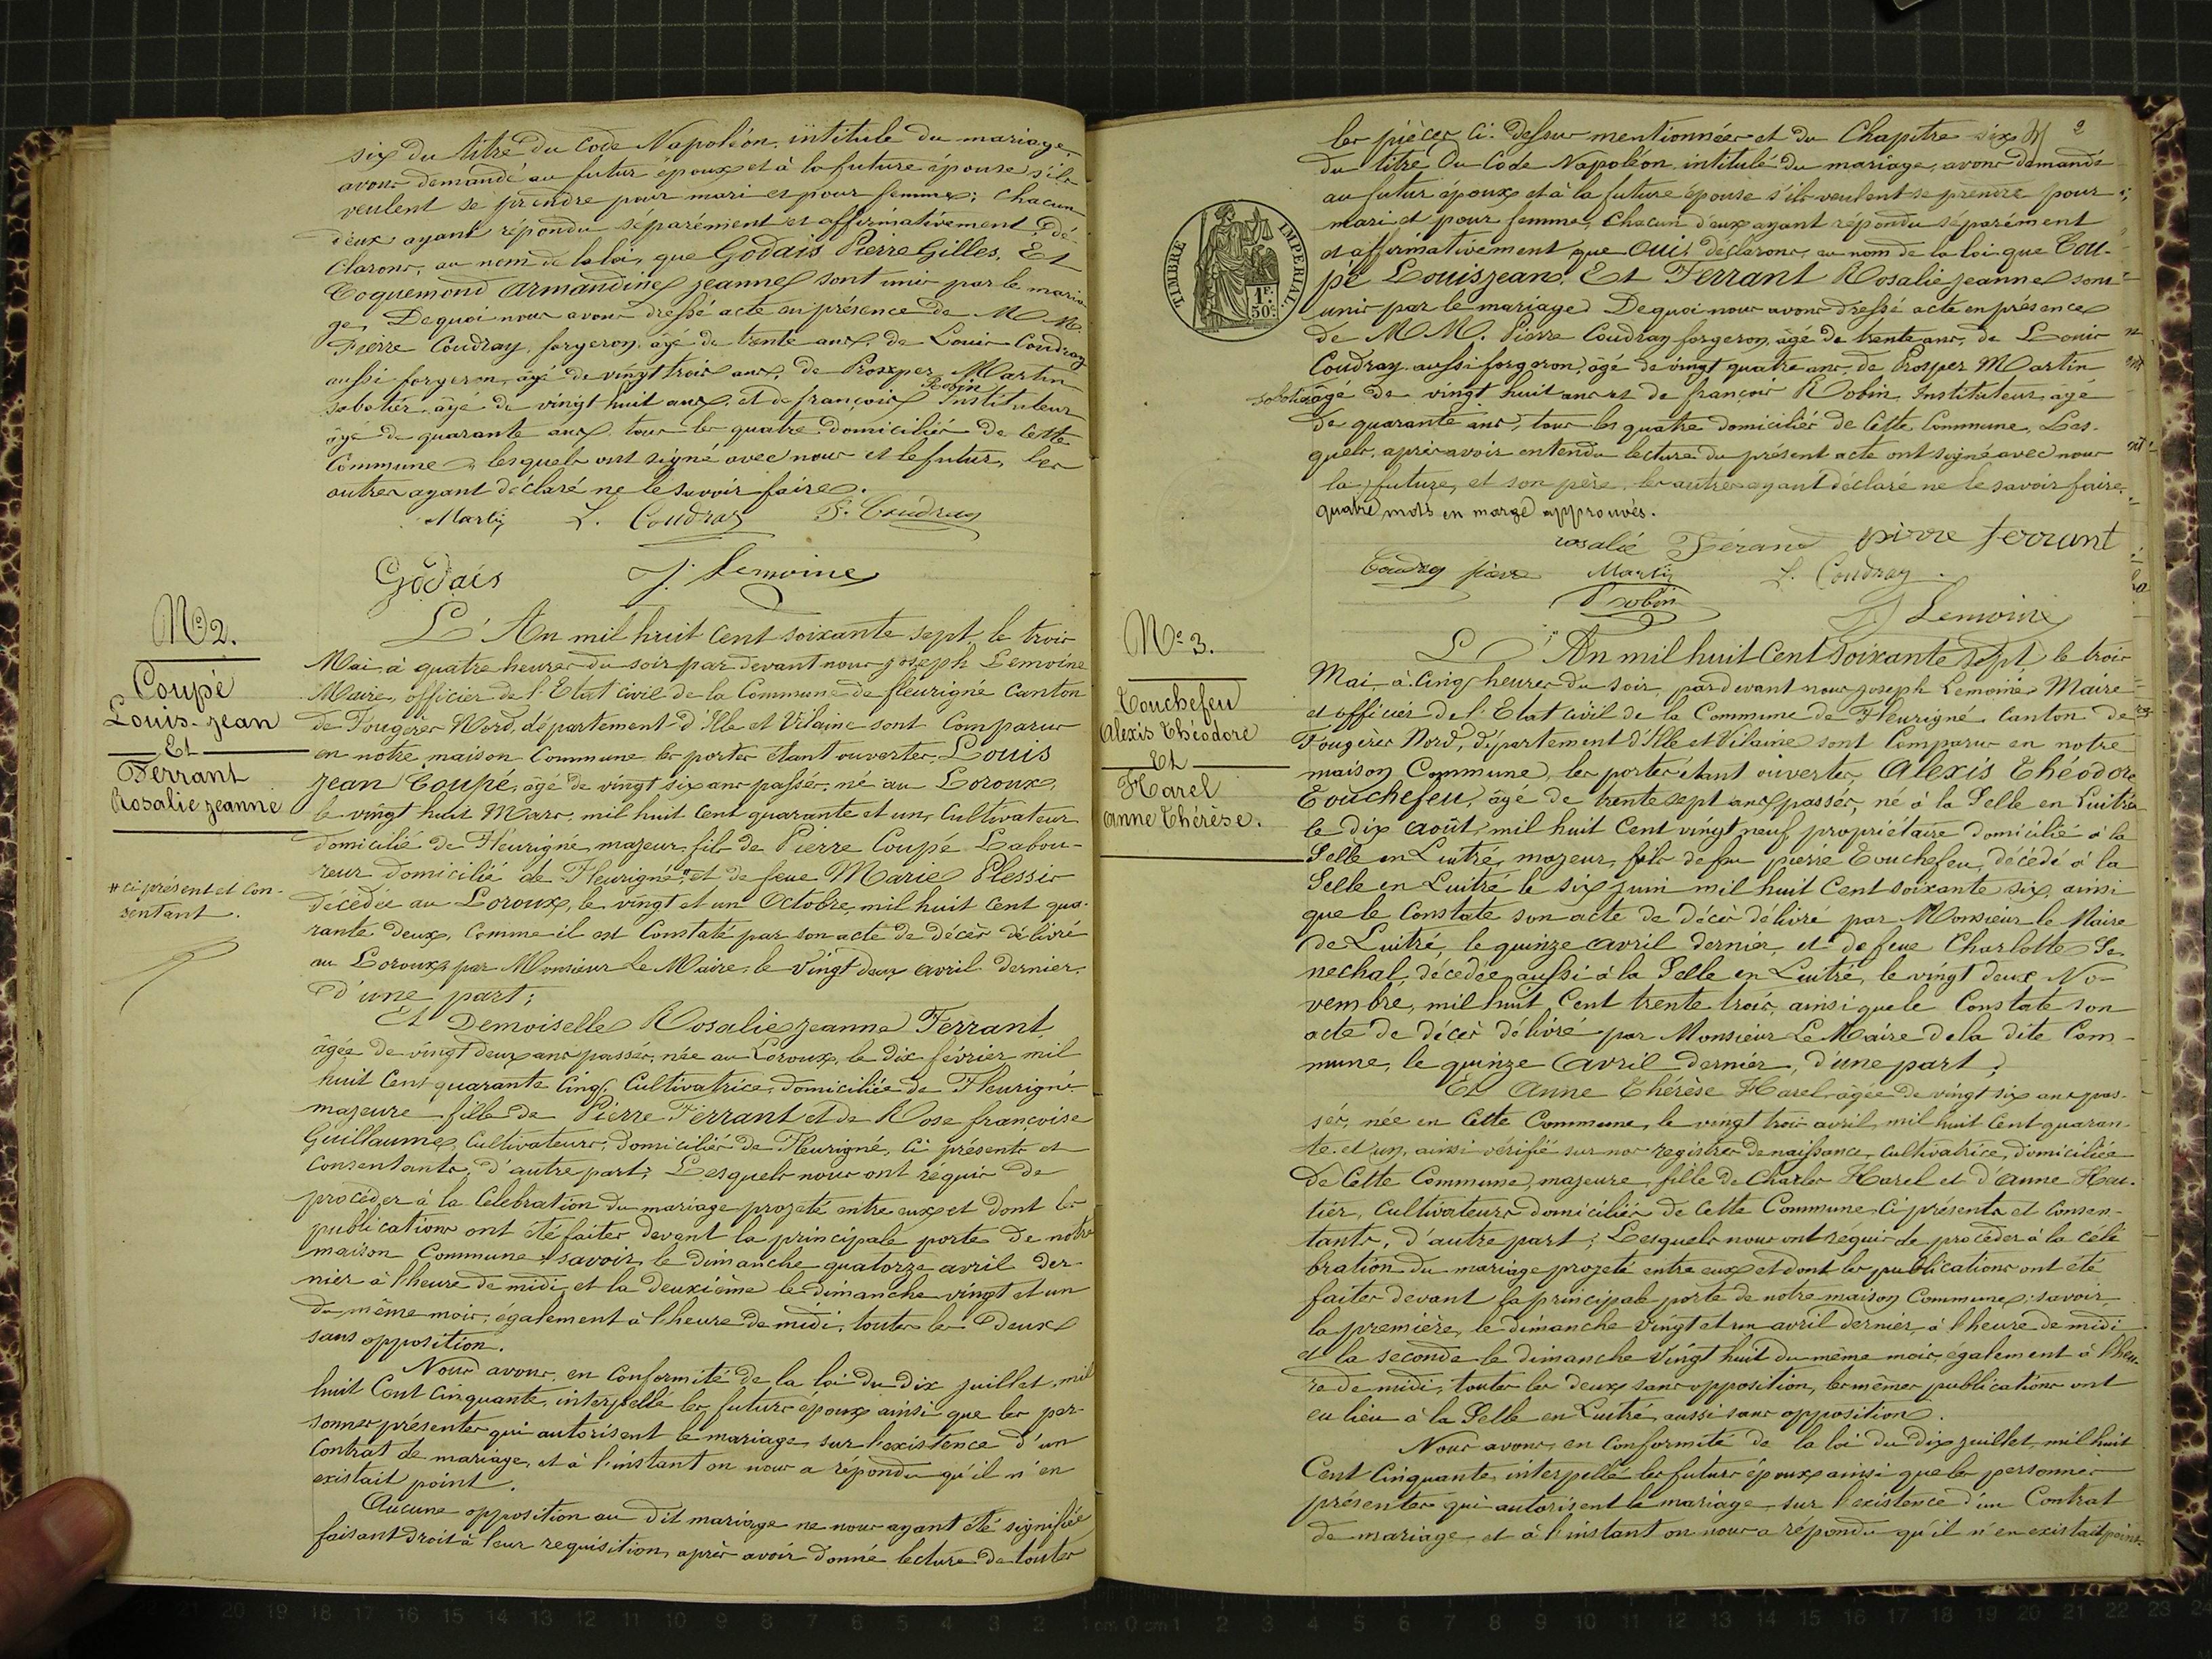 six du titre du Code Napoléon, intitulé du mariage,
avons demandé au futur époux et à la future épouse s'ils
veulent se prendre pour mari et pour femme; chacun
d'eux ayant répondu séparément et affirmativement, dé-
clarons, au nom de la loi, que Godais Pierre Gilles, Et
Coquemond Armandine Jeanne sont unis par le maria-
ge. De quoi nous avons dressé acte en présence de M M.
Pierre Coudray, forgeron, âgé de trente ans, de Louis Coudray
aussi forgeron, âgé de vingt trois ans, de Prosper Martin
Robin
sabotier, âgé de vingt huit ans, et de françois Instituteur
âgé de quarante ans, tous les quatre domiciliés de cette
Commune, lesquels ont signé avec nous et le futur, les
autres ayant déclaré ne le savoir faire.
Martin L. Coudray P. Coudray
Godais J. Lemoine
No 2.
Coupé
Louis-Jean
Et
Ferrant
Rosalie Jeanne
# ci présent et con-
sentant.
L'An mil huit cent soixante sept, le trois
Mai, à quatre heures du soir par devant nous Joseph Lemoine
Maire, officier de l'Etat civil de la Commune de fleurigné Canton
de Fougères Nord, département d'Ille et Vilaine sont Comparus
en notre maison Commune les portes étant ouvertes, Louis
Jean Coupé, âgé de vingt six ans passés, né au Loroux,
le vingt huit Mars, mil huit Cent quarante et un, Cultivateur
domicilié de Fleurigné, majeur, fils de Pierre Coupé Labou-
reur domicilié de Fleurigné,# et de feue Marie Plessis
décédée au Loroux, le vingt et un Octobre, mil huit Cent qua-
rante deux, Comme il est Constaté par son acte de décès délivré
au Loroux par Monsieur Le Maire, le vingt deux avril dernier,
d'une part;
Et Demoiselle Rosalie Jeanne Ferrant
âgée de vingt deux ans passés, née au Loroux, le dix février mil
huit Cent quarante Cinq, Cultivatrice, domiciliée de Fleurigné
majeure fille de Pierre Ferrant et de Rose françoise
Guillaume, Cultivateurs, domiciliés de Fleurigné, ci présents et
Consentants, d'autre part; Lesquels nous ont réquis de
procéder à la Célébration du mariage projeté entre eux et dont les
publications ont été faites devant la principale porte de notre
maison Commune, savoir, le dimanche quatorze avril der-
nier à l'heure de midi, et la deuxième le dimanche vingt et un
du même mois, également à l'heure de midi, toutes les deux
sans opposition.
Nous avons, en Conformité de la loi du dix juillet, mil
huit Cent Cinquante, interpellé les futurs époux ainsi que les per-
sonnes présentes qui autorisent le mariage, sur l'existence d'un
Contrat de mariage, et à l'instant on nous a répondu qu'il n'en
existait point.
Aucune opposition au dit mariage ne nous ayant été signifiée
faisant droit à leur requisition, après avoir donné lecture de toutes
2
les pièces Ci-dessus mentionnées et du Chapitre six
du titre du Code Napoléon intitulé du mariage, avons demandé
au futur époux et à la future épouse s'ils veulent se prendre pour
mari et pour femme, Chacun d'eux ayant répondu séparément
et affirmativement que oui, déclarons, au nom de la loi que Cou-
pé Louis Jean, Et Ferrant Rosalie Jeanne sont
unis par le mariage. De quoi nous avons dressé acte en présence
de M M. Pierre Coudray forgeron, âgé de trente ans, de Louis
Coudray aussi forgeron, âgé de vingt quatre ans, de Prosper Martin
sabotier âgé de vingt huit ans et de françois Robin, Instituteur, âgé
de quarante ans, tous les quatre domiciliés de Cette Commune, Les-
quels, après avoir entendu lecture du présent acte ont signé avec nous
la future, et son père, les autres ayant déclaré ne le savoir faire.
quatre mots en marge approuvés.
TIMBRE IMPERIAL
1F.
50c.
rosalie Férand pierre ferrant
Coudray pierre Martin L. Coudray
Robin
J Lemoine
No 3.
Touchefeu
Alexis Théodore
Et
Harel
Anne Thérèse.
L'An mil huit Cent soixante sept, le trois
Mai, à Cinq heures du soir, par devant nous Joseph Lemoine Maire
et officier de l'Etat civil de la Commune de Fleurigné, Canton de
Fougères Nord, département d'Ille et Vilaine sont Comparus en notre
maison Commune, les portes étant ouvertes, Alexis Théodore
Touchefeu, âgé de trente sept ans passés, né à la Selle en Luitré
le dix août, mil huit Cent vingt neuf, propriétaire domicilié à la
Selle en Luitré, majeur, fils de feu pierre Touchefeu, décédé à la
Selle en Luitré le six juin mil huit Cent soixante six, ainsi
que le Constate son acte de décès délivré par Monsieur le Maire
de Luitré, le quinze avril dernier, et de feue Charlotte Se-
nechal, décédée aussi à la Selle en Luitré, le vingt deux No-
vembre, mil huit Cent trente trois, ainsi que le Constate son
acte de décès délivré par Monsieur Le Maire de la dite Com-
mune, le quinze avril dernier, d'une part;
Et Anne Thérèse Harel, âgée de vingt six ans pas-
sés, née en Cette Commune, le vingt trois avril, mil huit Cent quaran-
te et un, ainsi vérifié sur nos registres de naissance, cultivatrice, domiciliée
de Cette Commune, majeure, fille de Charles Harel et d'Anne Hau-
tier, Cultivateurs domiciliés de Cette Commune, Ci présents et Consen-
tants, d'autre part; Lesquels nous ont réquis de procéder à la célé
bration du mariage projeté entre eux et dont les publications ont été
faites devant la principale porte de notre maison Commune; savoir,
la première, le dimanche vingt et un avril dernier, à l'heure de midi
et la seconde le dimanche vingt huit du même mois, également à l'heu-
re de midi, toutes les deux sans opposition, les mêmes publications ont
eu lieu à la Selle en Luitré, aussi sans opposition.
Nous avons, en Conformité de la loi du dix juillet, mil huit
Cent Cinquante, interpellé les futurs époux ainsi que les personnes
présentes qui autorisent le mariage, sur l'existence d'un Contrat
de mariage, et à l'instant on nous a répondu qu'il n'en existait point.